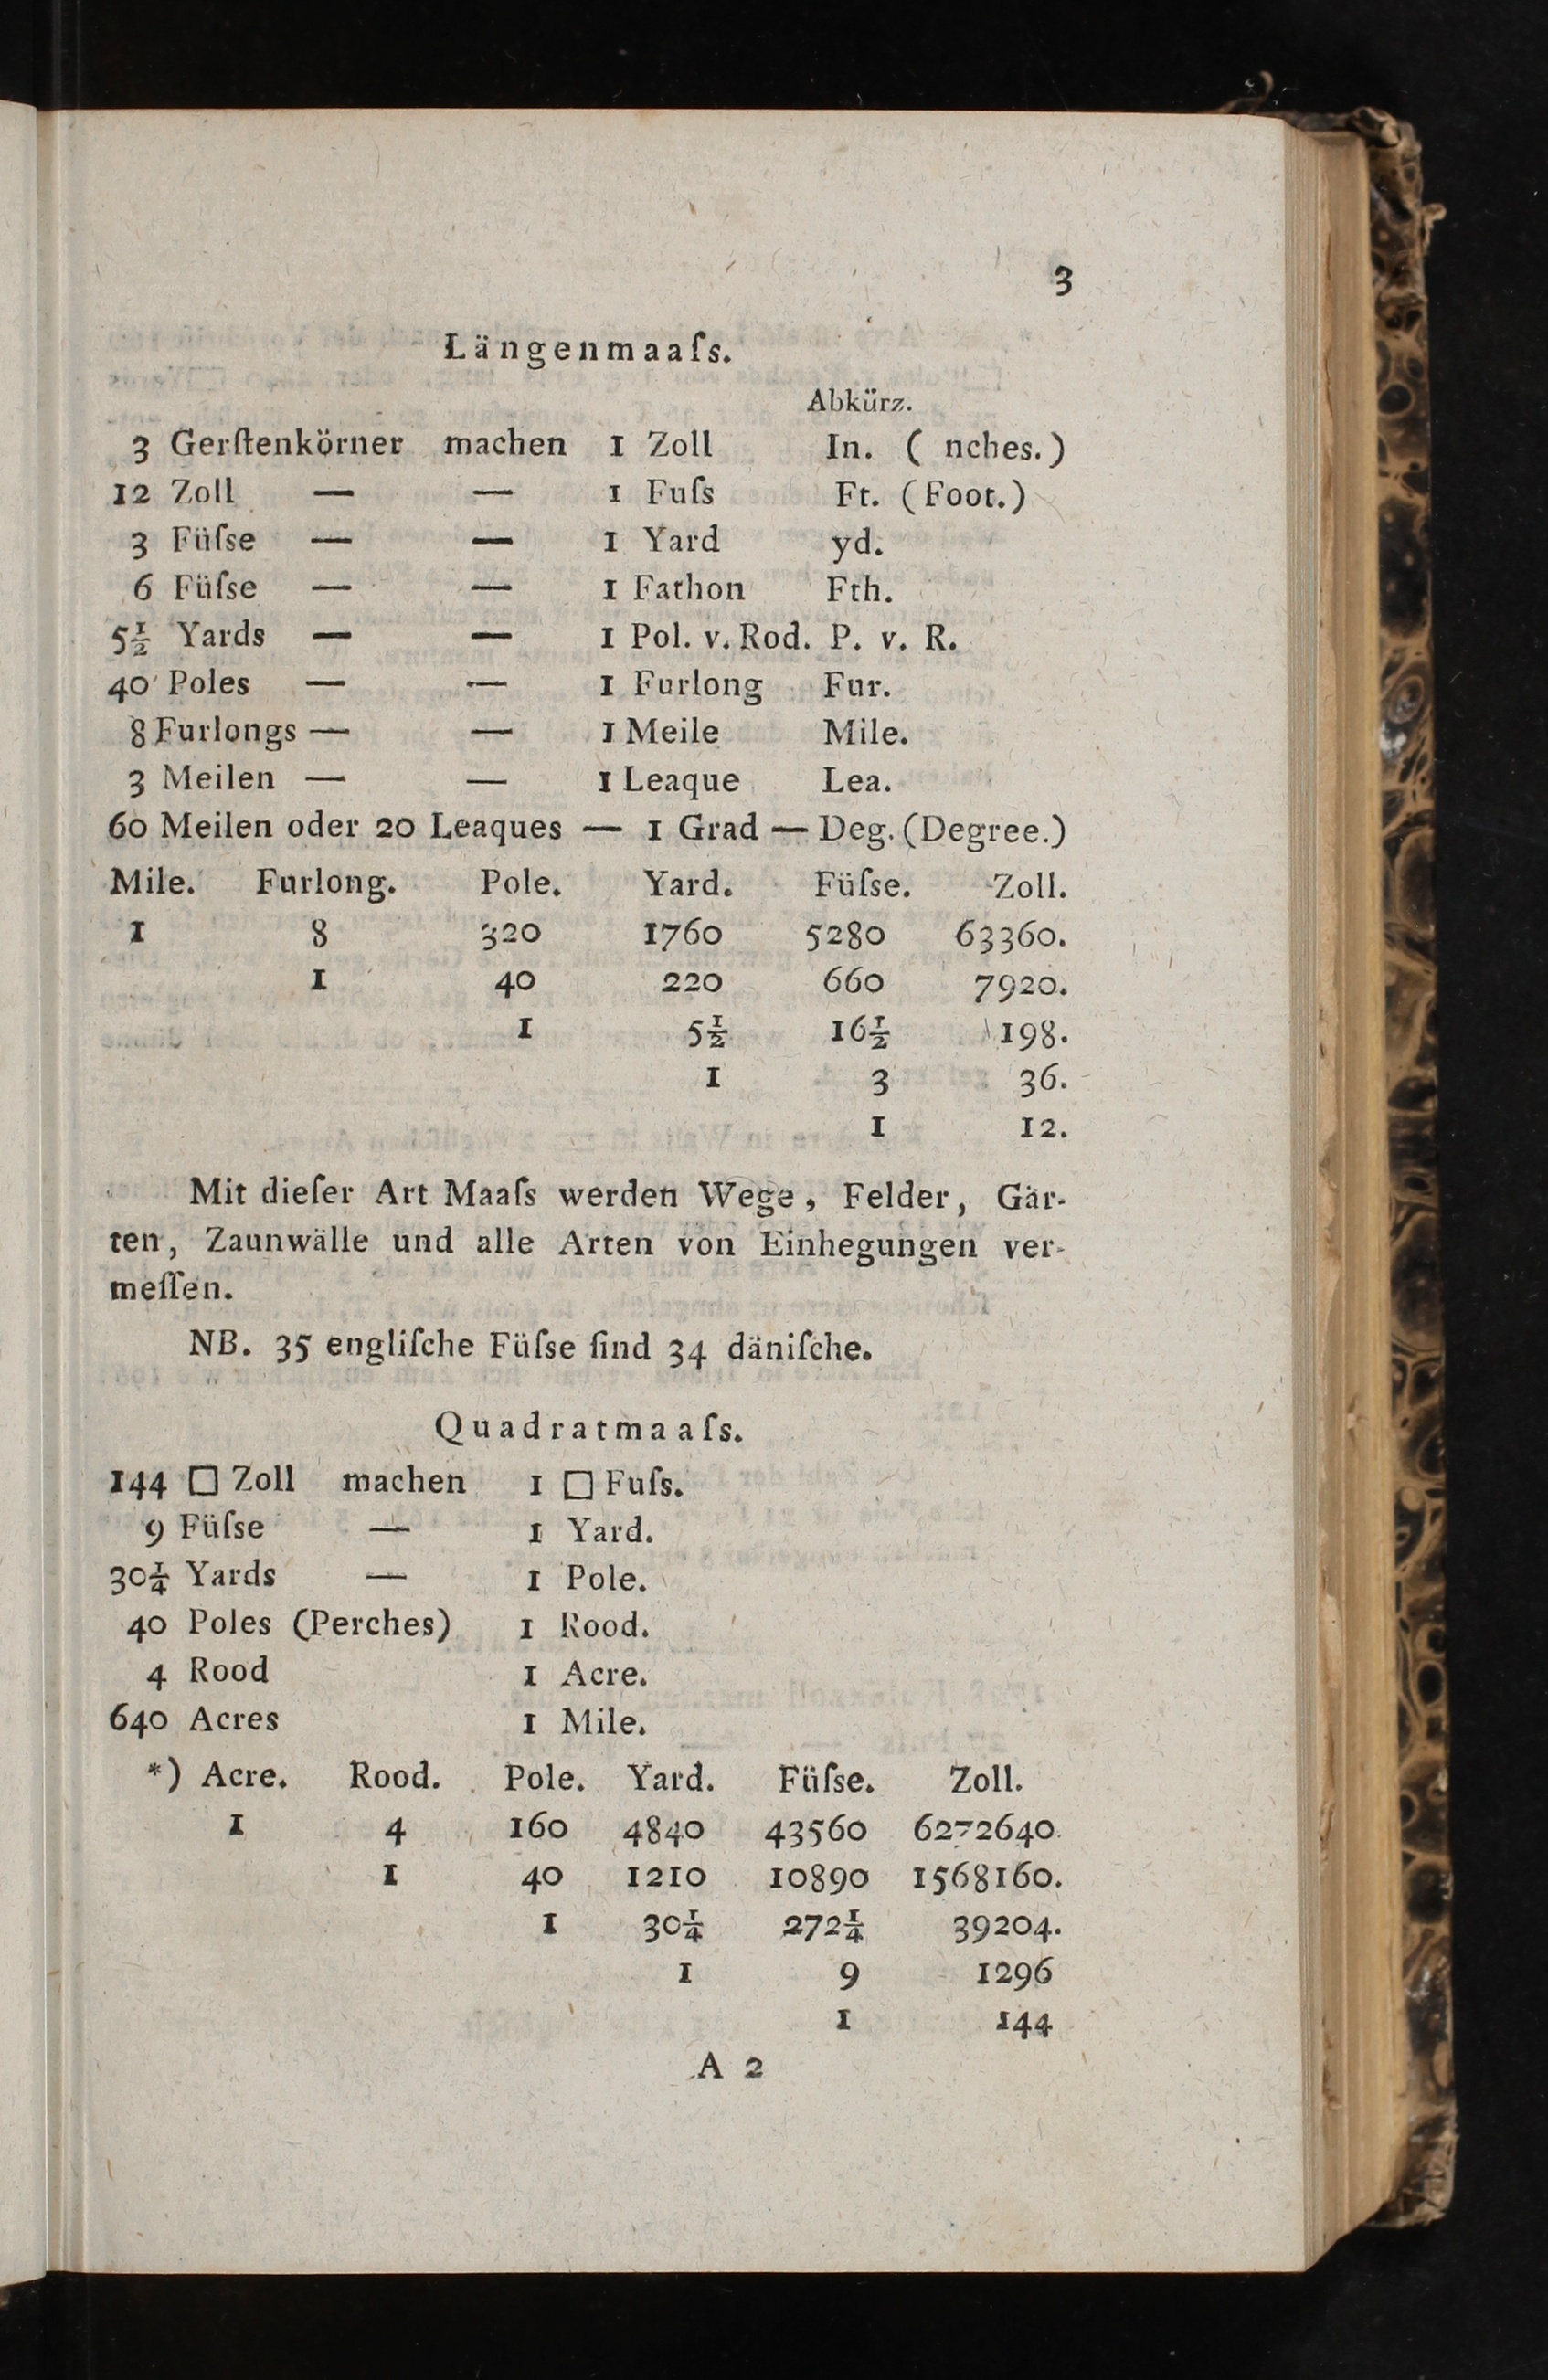 3
Längenmaaſs.
Abkürz.
3 Gerſtenkörner machen 1 Zoll In. ( nches.)
12 Zoll — — 1 Fuſs Ft. (Foot.)
3 Füſse — — 1 Yard yd.
6 Füſse — — 1 Fathon Fth.
5½ Yards — — 1 Pol. v. Rod. P. v. R.
40 Poles — — 1 Furlong Fur.
8 Furlongs — — 1 Meile Mile.
3 Meilen — — 1 Leaque Lea.
60 Meilen oder 20 Leaques — 1 Grad — Deg. (Degree.)
Mile. Furlong. Pole. Yard. Füſse. Zoll.
1 8 320 1760 5280 63360.
1 40 220 660 7920.
1 5½ 16½ 198.
1 3 36.
1 12.
Mit dieſer Art Maaſs werden Wege, Felder, Gär-
ten, Zaunwälle und alle Arten von Einhegungen ver-
meſſen.
NB. 35 engliſche Füſse ſind 34 däniſche.
Quadratmaaſs.
144 □ Zoll machen 1 □ Fuſs.
9 Füſse — 1 Yard.
30¼ Yards — 1 Pole.
40 Poles (Perches) 1 Rood.
4 Rood 1 Acre.
640 Acres 1 Mile.
*) Acre. Rood. Pole. Yard. Füſse. Zoll.
1 4 160 4840 43560 6272640.
1 40 1210 10890 1568160.
1 30¼ 272¼ 39204.
1 9 1296
1 144
A 2